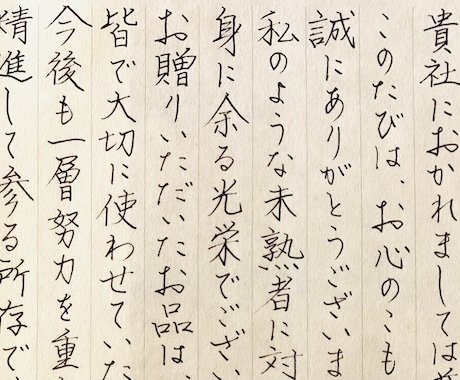 貴社におかれましては
このたびは、お心のこも
誠にありがとうございま
私のような未熟者に対
身に余る光栄でござい
お贈りいただいたお品は、
皆で大切に使わせていた
今後も一層努力を重
精進して参る所存で